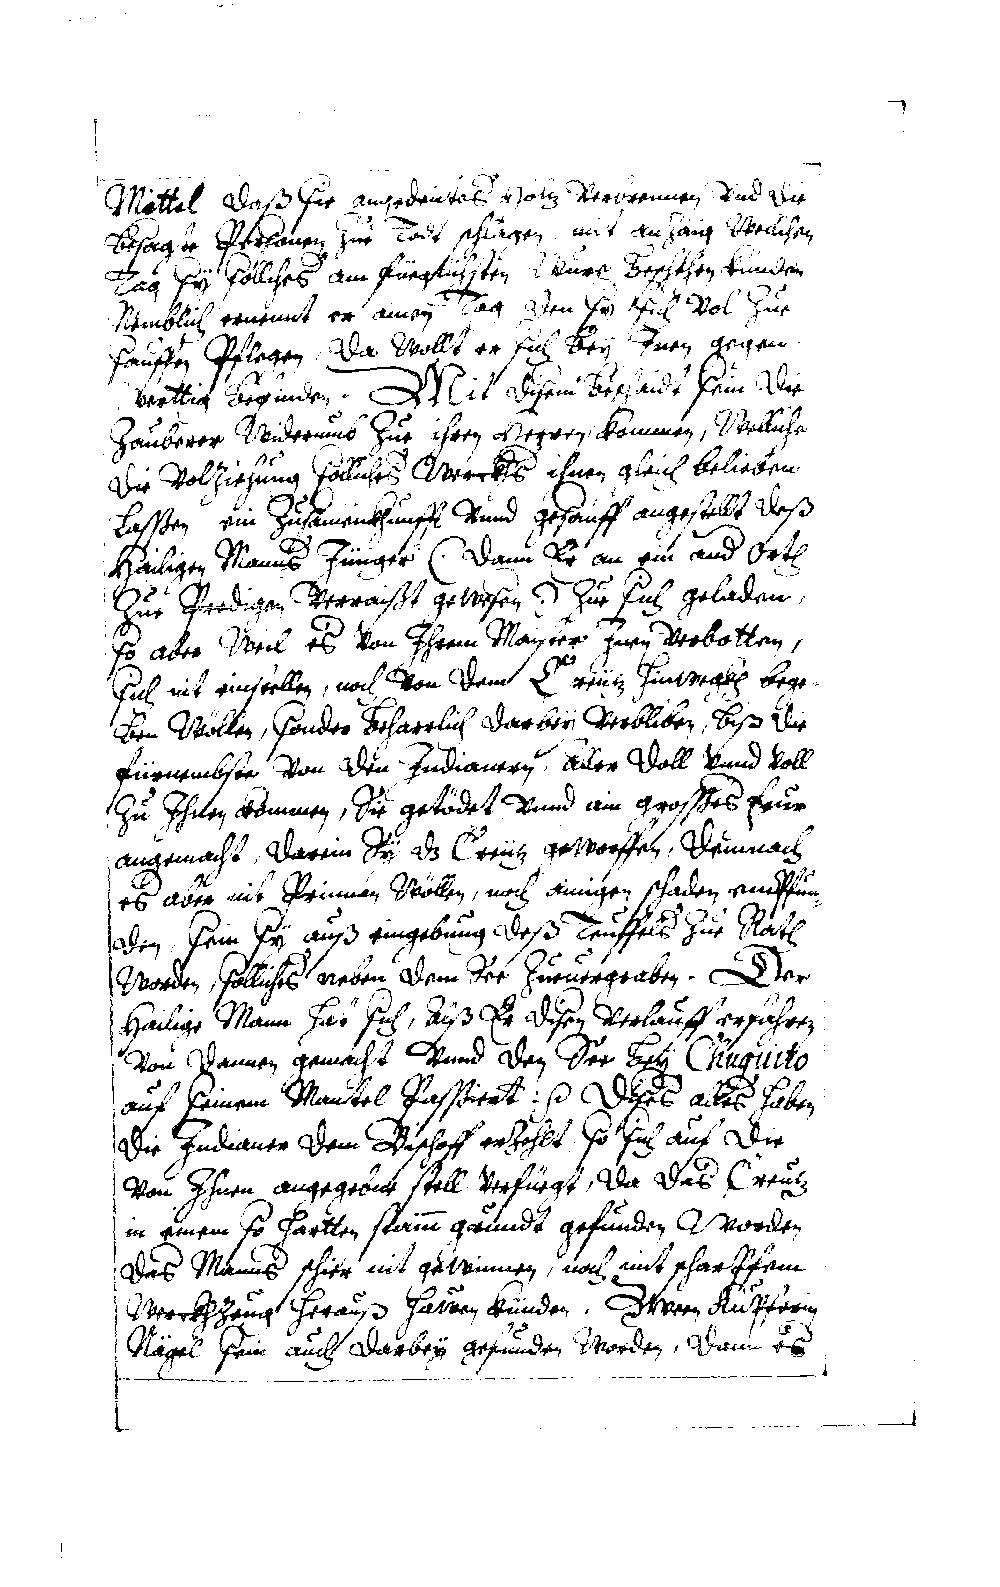 Mittel daß sie angedeutes Holtz verbrennen und die
besagte Personen zue Todt schlugen, mit anhang wellichen
Tag sy solliches am füeglichsten wurs beschehen kunden
Nemblich ernennt er ainen Tag den sy sich vol zue
sauffen Pflegen, da wollt er sich bey Inen gegen
werttig befinden. Mit disem beschaidt sein die
Zauberer widerumb zue ihren Herren kommen, welliche
die volziehung solliches Werckhs ihnen gleich belieben
lassen ein Zusamenkhunfft vnnd gesäuff angestellt deß
Hailigen Manns Jünger (: dann Er an ein and Orth
zue Predigen verraißt gewesen :) zue sich geladen,
so aber weil es von Ihrem Maister Inen verbotten,
sich nit einstellen, noch von dem Creütz hinwegkh bege-
ben wöllen, sonder beharrlich darbey verbliben, biß die
fürnembste von den Indianern, aller doll vnnd voll
zu Ihnen kommen, Sie getödet vnnd ain grosses feur
angemacht, darein Sy dz Creütz geworffen, demnach
es aber nit Prinnen wöllen, noch ainigen schaden empfun-
den, sein sy auß eingebung deß Teuffels zue Rath
worden, solliches neben dem See zuuergraben. Der
Hailige Mann hat sich, alß Er disen verlauff erfahren
von dannen gemacht vnnd den See bey Chuquito
auf seinem Mantel Passiert :/ Dises alles haben
die Indianer dem Bischoff erzehlt so sich auf die
von Ihnen angegebne stell verfüegt, da das Creutz
in einem so hartten stainn grundt gefunden worden
das Manns schier nit gewinnen, noch mit scharpfem
Werckhzeug herauß hawen künden. Zween kupfferin
Nägel sein auch darbey gefunden worden, dann es